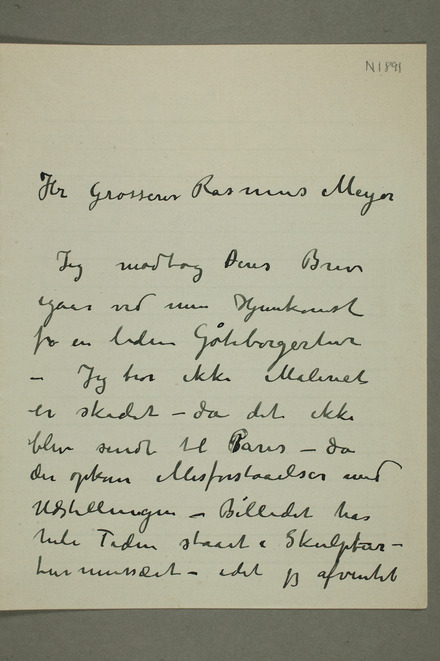 N1891
Hr Grosserer Rasmus Meyer
Jeg modtog Deres Brev
igaar ved min Hjemkomst
fra en liden Göteborgertur
– Jeg tror ikke Maleriet
er skadet – da det ikke
blev sendt til Paris – da
der opkom Misforstaaelser med
Udstillingen – Billedet har
hele Tiden staaet i Skulptur-
turmusæet – idet jeg afventet